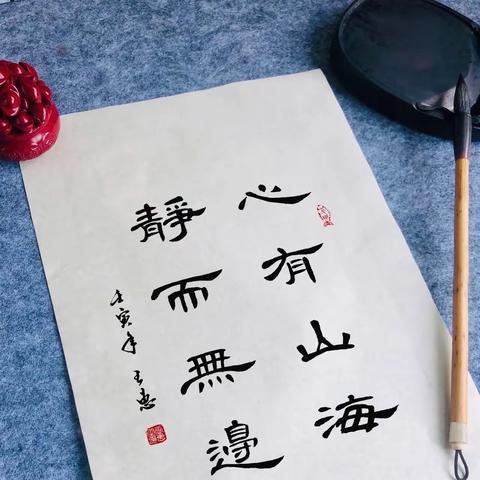 心有山海
靜而無邊
壬寅年 王惠